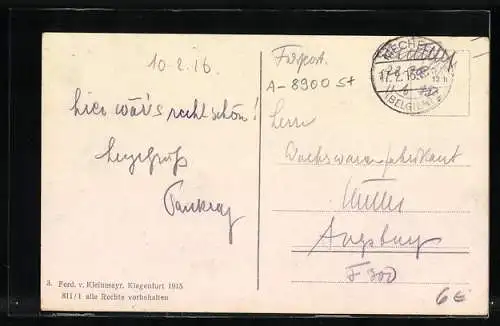 10-2.16
hier wär's recht schön!
Herzgruß
Pankraz
3. Ferd. v. Kleinmayr. Klagenfurt 1915
811/1 alle Rechte vorbehalten
Feldpost.
A-8900 St
MECHELN
(BELGIEN)
Herrn
Wachswarenfabrikant
Müller
Augsburg
F 300
6€